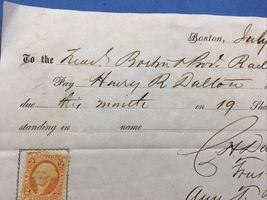 Boston, July
To the Treas. Boston & Prov. Rail
Pay Henry R Dalton
due six months on 19 Sha
standing in name
C H Da
Trus